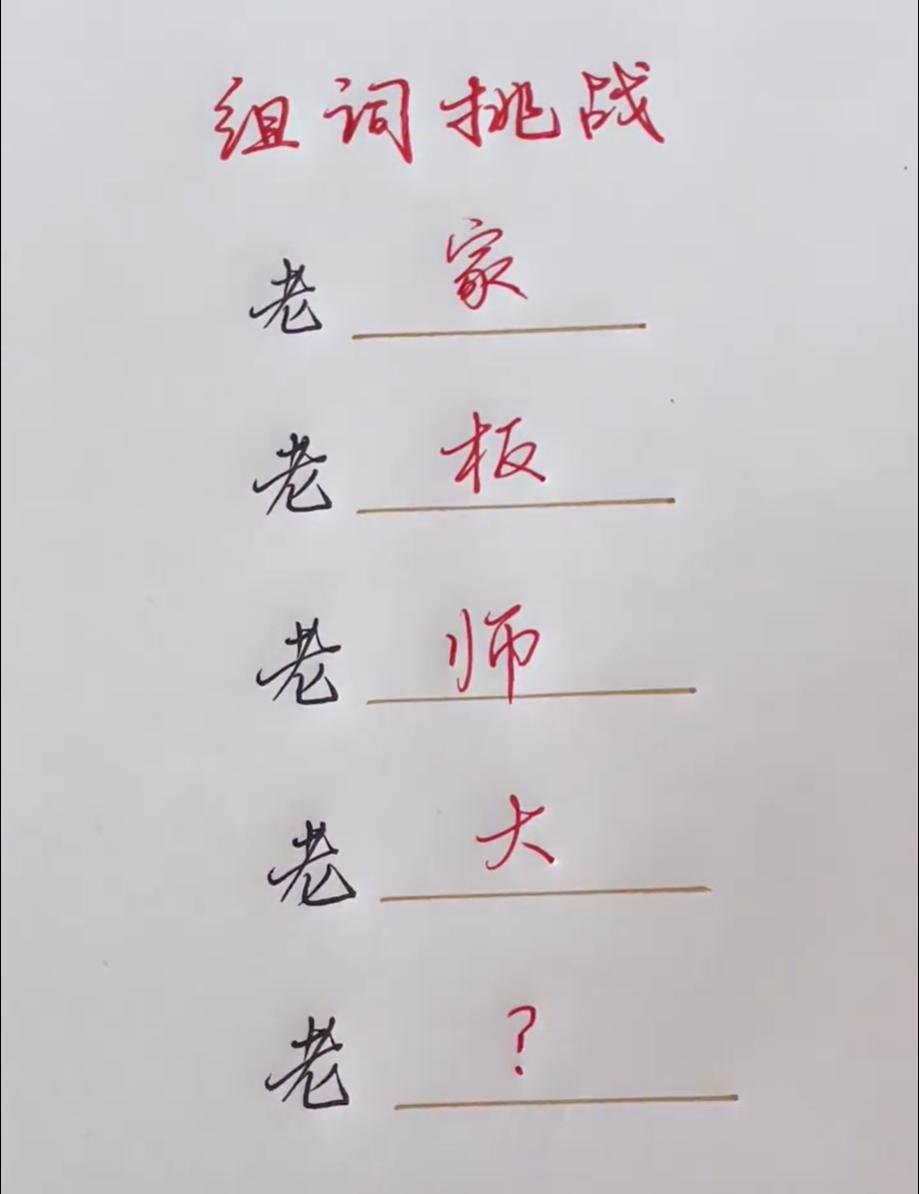 组词挑战
老家
老板
老师
老大
老?